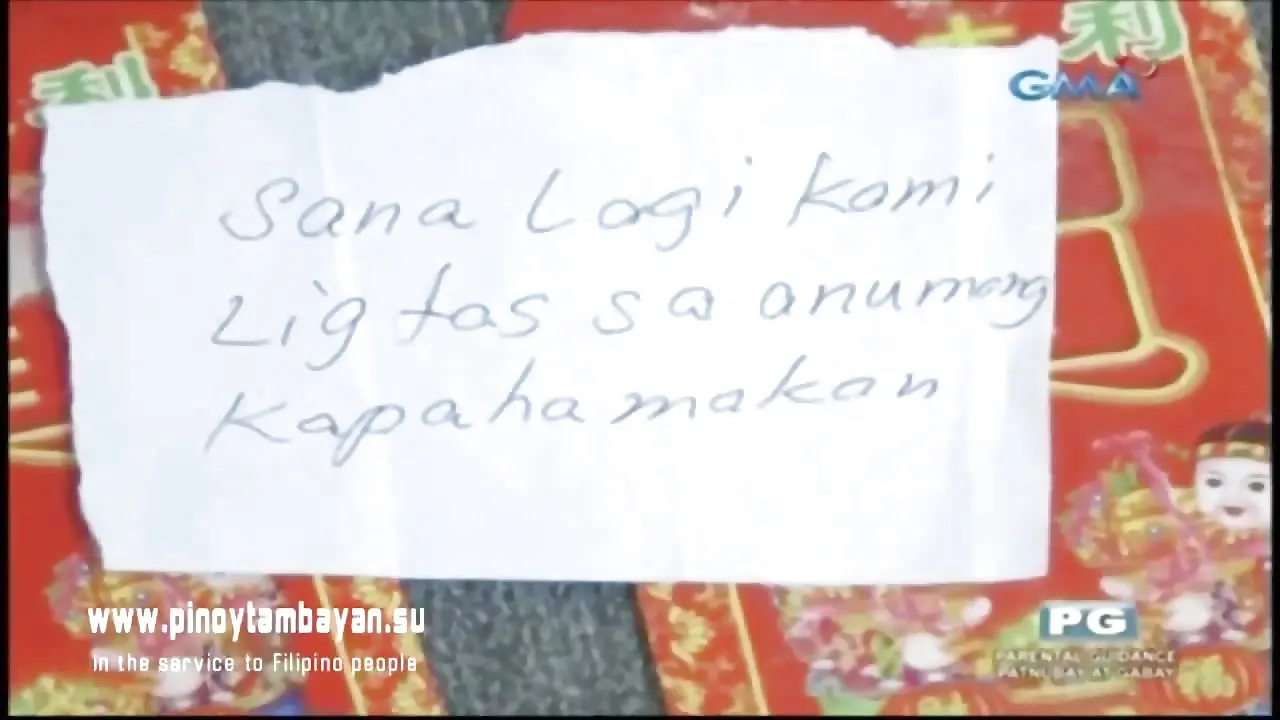 利
利
GMA
Sana Lagi kami
Ligtas sa anumang
Kapahamakan
www.pinoytambayan.su
in the service to Filipino people
PG
PARENTAL GUIDANCE
PATNUBAY AT GABAY